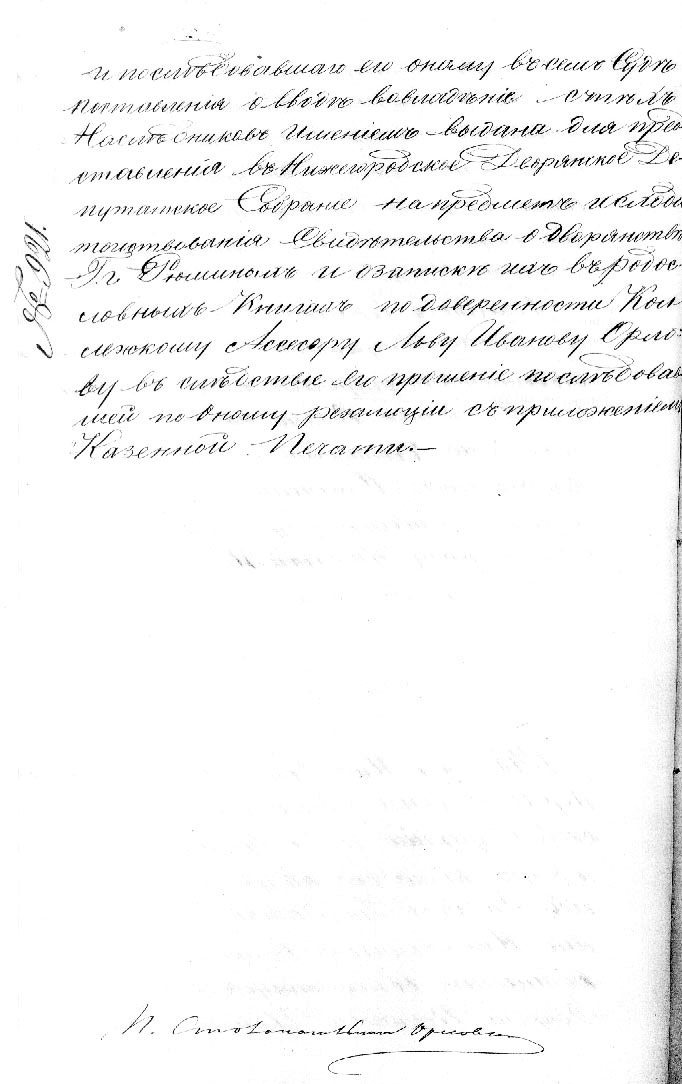 и послѣдовавшаго по оному въ семъ Судѣ
постановленія о вводѣ во владѣніе сихъ
Наслѣдниковъ имѣніемъ выдана для пред
ставленія въ Нижегородское Дворянское Де
путатское Собраніе на предметъ изслѣдо
ванія Свидѣтельства о дворянствѣ
Гг. Рюминомъ и о запискѣ ихъ въ родос
ловныхъ Книгахъ по доверенности Кол
лежскому Ассесору Льву Иванову Орло=
ву въ слѣдствіе его прошеніе послѣдовав
шей по оному резолюціи съ приложеніемъ
Казенной Печати.—
№ 921.